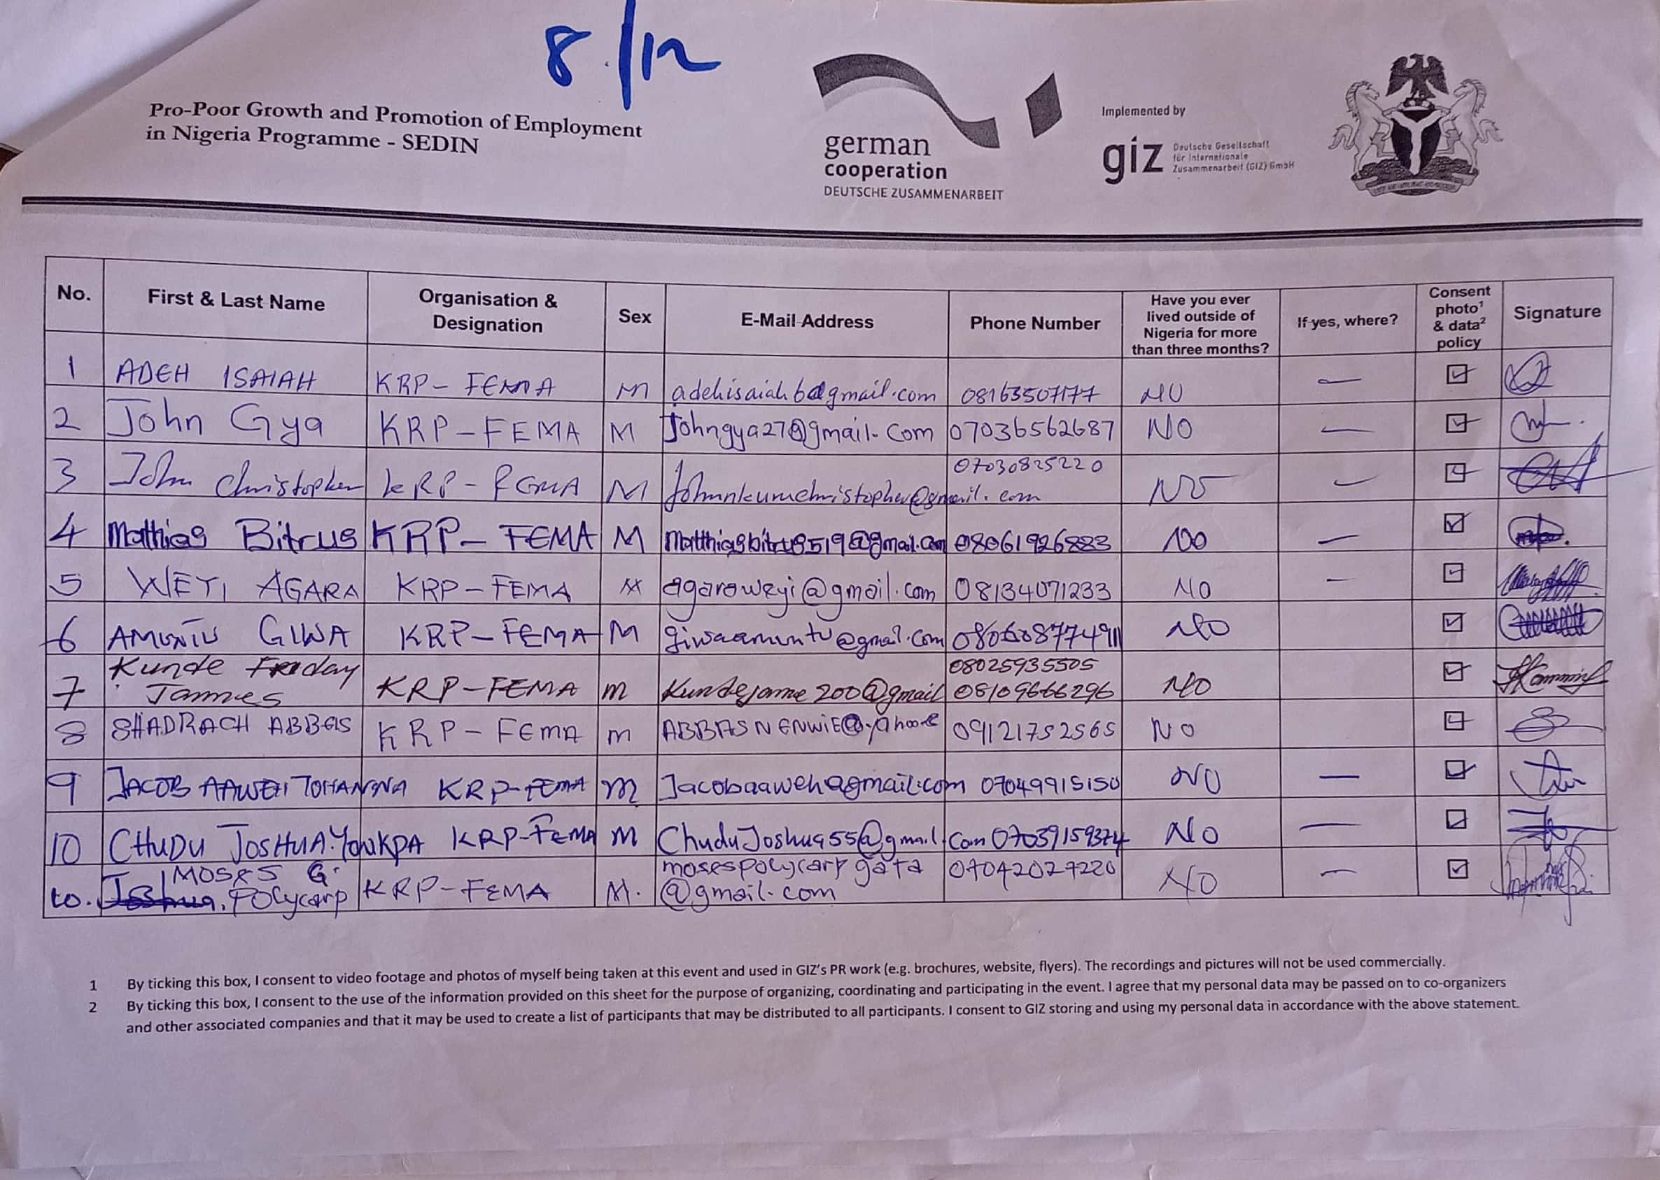 8/12
Pro-Poor Growth and Promotion of Employment
in Nigeria Programme - SEDIN
german
cooperation
DEUTSCHE ZUSAMMENARBEIT
Implemented by
giz Deutsche Gesellschaft
für Internationale
Zusammenarbeit (GIZ) GmbH
No. First & Last Name Organisation & Designation Sex E-Mail Address Phone Number Have you ever lived outside of Nigeria for more than three months? If yes, where? Consent photo¹ & data² policy Signature
1 ADEH ISAIAH KRP-FEMA M adehisaiah6@gmail.com 08163507177 NO —
2 John Gya KRP-FEMA M Johngya27@gmail.com 07036562687 NO —
3 John Christopher KRP-FEMA M Johnnkumchristopher@gmail.com 07030825220 NO —
4 Matthias Bitrus KRP-FEMA M Matthiasbitrus519@gmail.com 08061926883 NO —
5 WEYI AGARA KRP-FEMA M agaraweyi@gmail.com 08134071233 NO —
6 AMUNTU GIWA KRP-FEMA M giwaamuntu@gmail.com NO
7 Kunde Friday KRP-FEMA m Kundejame200@gmail 08025935505
Jammes 08109666296 NO
8 SHADRACH ABBAS KRP-FEMA m ABBASNENWIE@yahoo 09121752565 NO
9 JACOB AAWEH YOHANNA KRP-FEMA m Jacobaaweh@gmail.com 07049915150 NO —
10 CHUDU JOSHUA KRP-FEMA m ChuduJoshua55@gmail.com 07039159374 NO —
to. MOSES G. KRP-FEMA M. mosespolycarpgata 07042027220 NO —
Polycarp @gmail.com
1 By ticking this box, I consent to video footage and photos of myself being taken at this event and used in GIZ's PR work (e.g. brochures, website, flyers). The recordings and pictures will not be used commercially.
2 By ticking this box, I consent to the use of the information provided on this sheet for the purpose of organizing, coordinating and participating in the event. I agree that my personal data may be passed on to co-organizers
and other associated companies and that it may be used to create a list of participants that may be distributed to all participants. I consent to GIZ storing and using my personal data in accordance with the above statement.